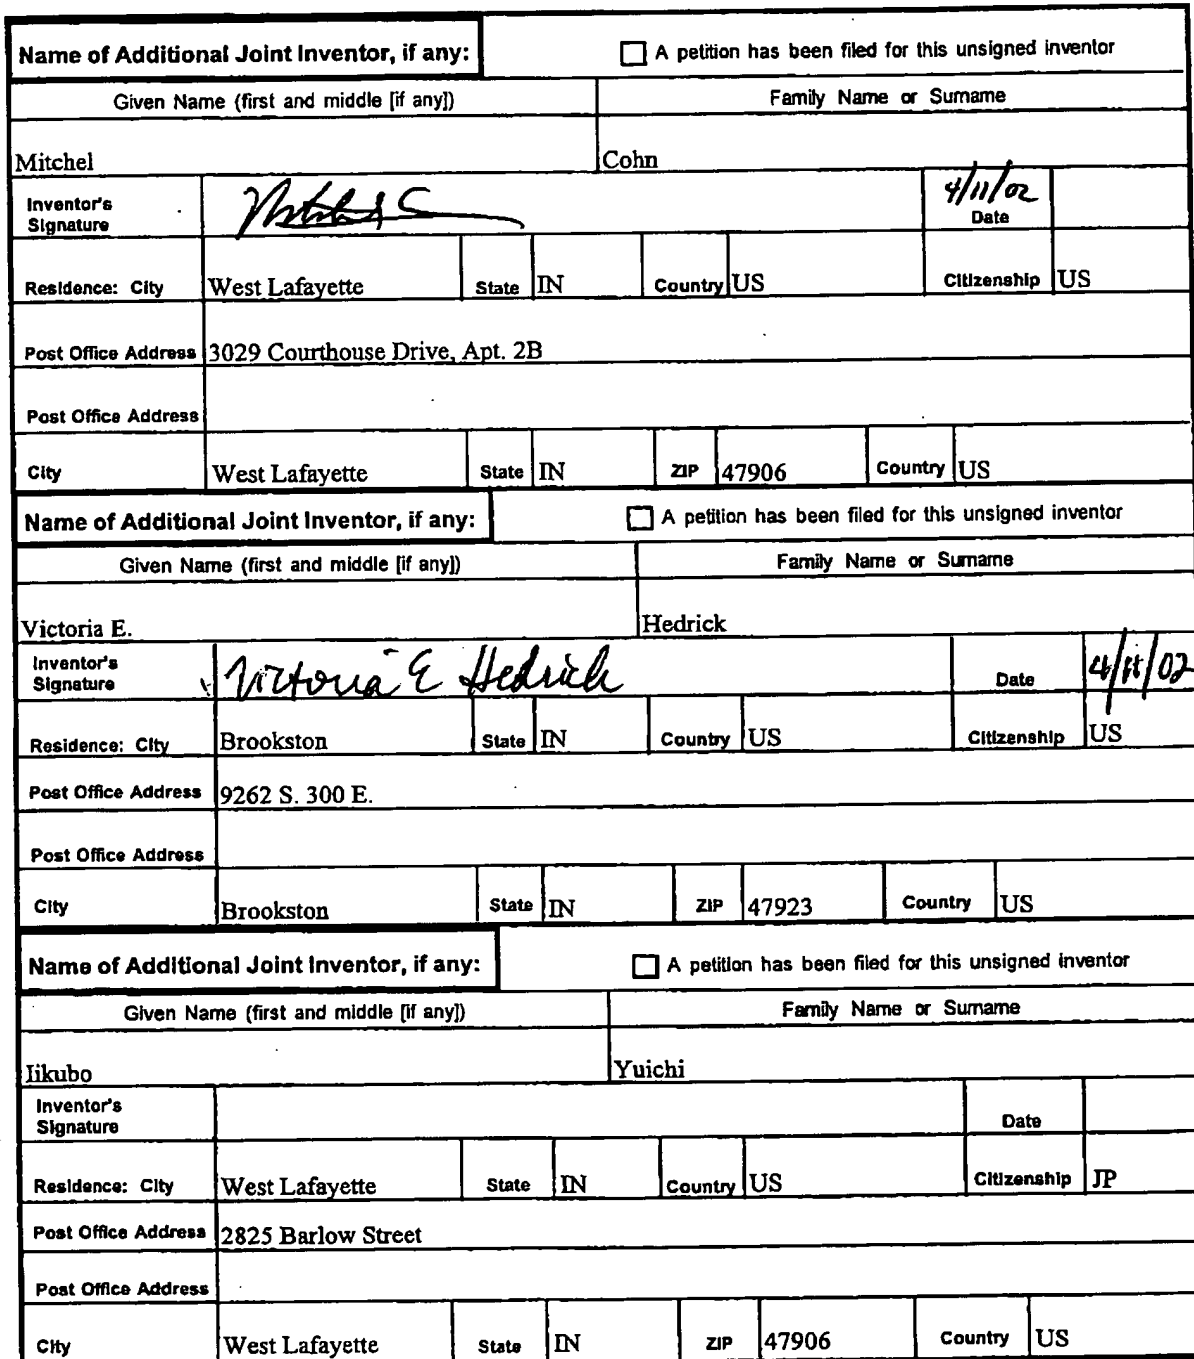 Name of Additional Joint Inventor, if any: ☐ A petition has been filed for this unsigned inventor
Given Name (first and middle [if any]) Family Name or Surname
Mitchel Cohn
Inventor's Signature 4/11/02 Date
Residence: City West Lafayette State IN Country US Citizenship US
Post Office Address 3029 Courthouse Drive, Apt. 2B
Post Office Address
City West Lafayette State IN ZIP 47906 Country US
Name of Additional Joint Inventor, if any: ☐ A petition has been filed for this unsigned inventor
Given Name (first and middle [if any]) Family Name or Surname
Victoria E. Hedrick
Inventor's Signature Victoria E Hedrick Date 4/11/02
Residence: City Brookston State IN Country US Citizenship US
Post Office Address 9262 S. 300 E.
Post Office Address
City Brookston State IN ZIP 47923 Country US
Name of Additional Joint Inventor, if any: ☐ A petition has been filed for this unsigned inventor
Given Name (first and middle [if any]) Family Name or Surname
Iikubo Yuichi
Inventor's Signature Date
Residence: City West Lafayette State IN Country US Citizenship JP
Post Office Address 2825 Barlow Street
Post Office Address
City West Lafayette State IN ZIP 47906 Country US